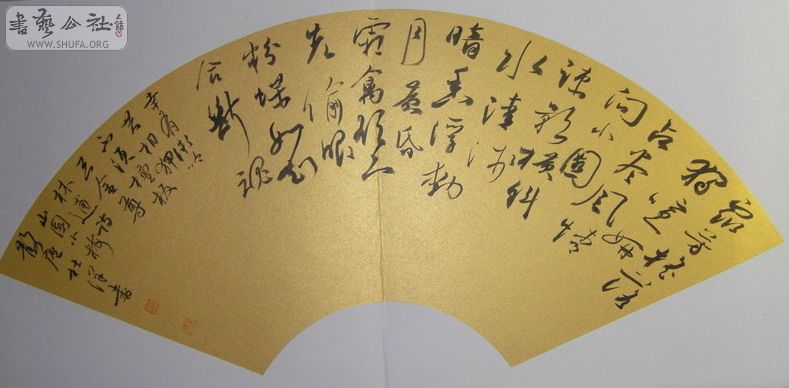 眾芳摇落
獨暄妍
占尽風情
向小園
疎影横斜
水清浅
暗香浮動
月黄昏
霜禽欲下
先偷眼
粉蝶如知
合断魂
幸有微吟
可相狎
不須檀板
共金尊
林逋詩
山園小梅
書藝公社
WWW.SHUFA.ORG